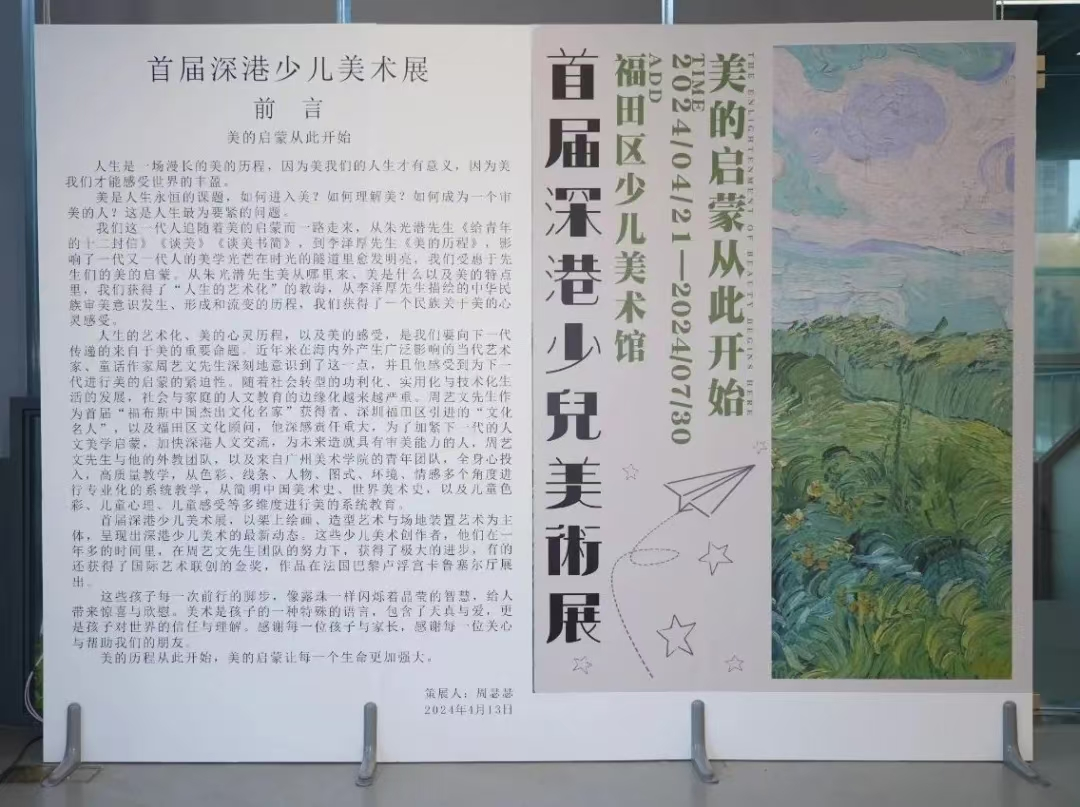 首届深港少儿美术展
前 言
美的启蒙从此开始
人生是一场漫长的美的历程，因为美我们的人生才有意义，因为美
我们才能感受世界的丰盈。
美是人生永恒的课题，如何进入美？如何理解美？如何成为一个审
美的人？这是人生最为要紧的问题。
我们这一代人追随着美的启蒙而一路走来，从朱光潜先生《给青年
的十二封信》《谈美》《谈美书简》，到李泽厚先生《美的历程》，影
响了一代又一代人的美学光芒在时光的隧道里愈发明亮，我们受惠于先
生们的美的启蒙。从朱光潜先生美从哪里来、美是什么以及美的特点
里，我们获得了“人生的艺术化”的教诲，从李泽厚先生描绘的中华民
族审美意识发生、形成和流变的历程，我们获得了一个民族关于美的心
灵感受。
人生的艺术化、美的心灵历程，以及美的感受，是我们要向下一代
传递的来自于美的重要命题。近年来在海内外产生广泛影响的当代艺术
家、童话作家周艺文先生深刻地意识到了这一点，并且他感受到为下一
代进行美的启蒙的紧迫性。随着社会转型的功利化、实用化与技术化生
活的发展，社会与家庭的人文教育的边缘化越来越严重。周艺文先生作
为首届“福布斯中国杰出文化名家”获得者、深圳福田区引进的“文化
名人”，以及福田区文化顾问，他深感责任重大，为了加紧下一代的人
文美学启蒙，加快深港人文交流，为未来造就具有审美能力的人，周艺
文先生与他的外教团队，以及来自广州美术学院的青年团队，全身心投
入，高质量教学，从色彩、线条、人物、图式、环境、情感多个角度进
行专业化的系统教学，从简明中国美术史、世界美术史，以及儿童色
彩、儿童心理、儿童感受等多维度进行美的系统教育。
首届深港少儿美术展，以架上绘画、造型艺术与场地装置艺术为主
体，呈现出深港少儿美术的最新动态。这些少儿美术创作者，他们在一
年多的时间里，在周艺文先生团队的努力下，获得了极大的进步，有的
还获得了国际艺术联创的金奖，作品在法国巴黎卢浮宫卡鲁塞尔厅展
出。
这些孩子每一次前行的脚步，像露珠一样闪烁着晶莹的智慧，给人
带来惊喜与欣慰。美术是孩子的一种特殊的语言，包含了天真与爱，更
是孩子对世界的信任与理解。感谢每一位孩子与家长，感谢每一位关心
与帮助我们的朋友。
美的历程从此开始，美的启蒙让每一个生命更加强大。
策展人：周瑟瑟
2024年4月13日
首届深港少兒美術展
ADD
福田区少儿美术馆
TIME
2024/04/21—2024/07/30
美的启蒙从此开始
THE ENLIGHTENMENT OF BEAUTY BEGINS HERE